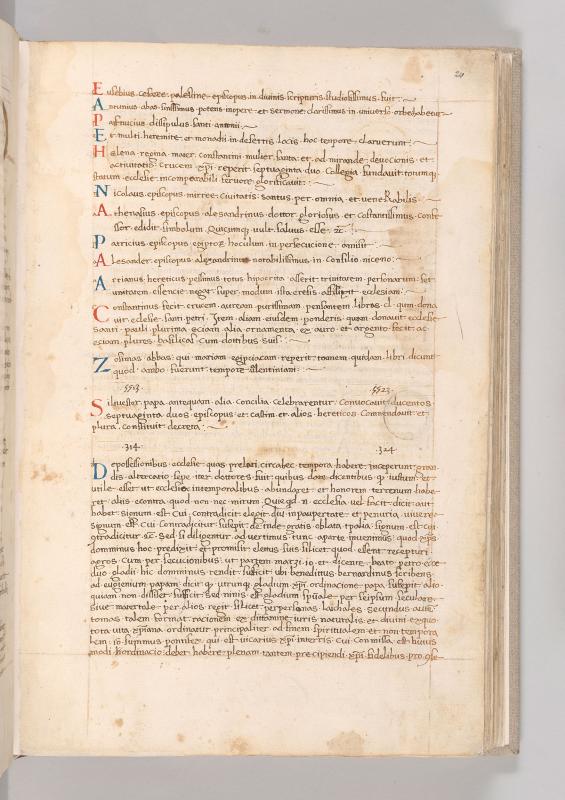 20
Eusebius cesaree palestine episcopus in divinis scripturis studiosissimus fuit
Antonius abas sanctissimus potens in opere et sermone clarissimus in universo orbe habetur
Pafnucius dissipulus santi antonii
Et multi heremite et monachi in desertis locis hoc tempore claruerunt
Helena regina mater constantini mulier santa et ad mirande devocionis et
activitatis Crucem xpi reperit septuaginta duo Collegia fundavit totumque
statum ecclesie incomparabili fervore glorificavit
Nicolaus episcopus mirree civitatis santus per omnia et venerabilis
Athenasius episcopus alesandrinus dottor gloriosus et costantissimus confe
ssor edidit simbolum Quicumque vult salvus esse
Patricius episcopus egiptoz hoculum in persecucione amisit
Alesander episcopus alexandrinus notabilissimus in Consilio niceno
Arrianus hereticus pessimus totus hipocrita asserit trinitatem personarum set
unitatem essencie negat super modum ista eresis afflixit ecclesiam
Constantinus fecit crucem auream purissimam pensantem libras cl quam dona
vit ecclesie santi petri Item aliam eiusdem ponderis quam donavit ecclesie
santi pauli plurima eciam alia ornamenta ex auro et argento fecit ac
eciam plures basilicas cum dottibus suis
Zosimas abbas qui mariam egipciacam reperit tamen quidam libri dicunt
quod ambo fuerunt tempore
5513 5523
Silvester papa antequam alia concilia celebrarentur Convocavit ducentos
septuaginta duos episcopus et et alios hereticos Comendavit et
plura constituit decreta
314 324
De possessionibus ecclesie quas prelati circa hec tempora habere inceperunt gran
dis altercatio sepe iter dottores fuit quibusdam dicentibus iustum et
utile esset ut ecclesia in temporalibus abundaret et honorem terrenum habe
ret aliis econtra quod non nec mirum ecclesia vel facit dicit aut
habet signum est Cui contradicitur elegit dum in paupertate et penuria viveret
signum est Cui contradicitur suscepit deinde gratis oblata tpalia signum est cui
contradicitur Sed si diligenter advertimus tunc aparte invenimus quod xps
dominus hoc predixit et promisit electus suis silicet quod essent recepturi
agros cum persecucionibus ut patet marzi io et dicente beato petro ecce
duo gladii hic dominus rendit sufficit ubi beneditus bernardinus scribens
ad eugenium papam dicit utrunque gladium xpi ordinacione papa suscepit alio
quam non dissiset sufficit sed nimis est gladium spirituale per seipsum seculare
sive materiale per alios regit silicet per personas laichales secundus
tomas talem format racionem ex dittamine iuris naturalis et divini
tota vita xpiana ordinatur principaliter ad finem spiritualem et non tempora
lem io Supmus pontifex qui est vicarius xpi in terris Cui commissa est huius
modi hordinacio debet habere plenam precipiendi xpi fidelibus pro